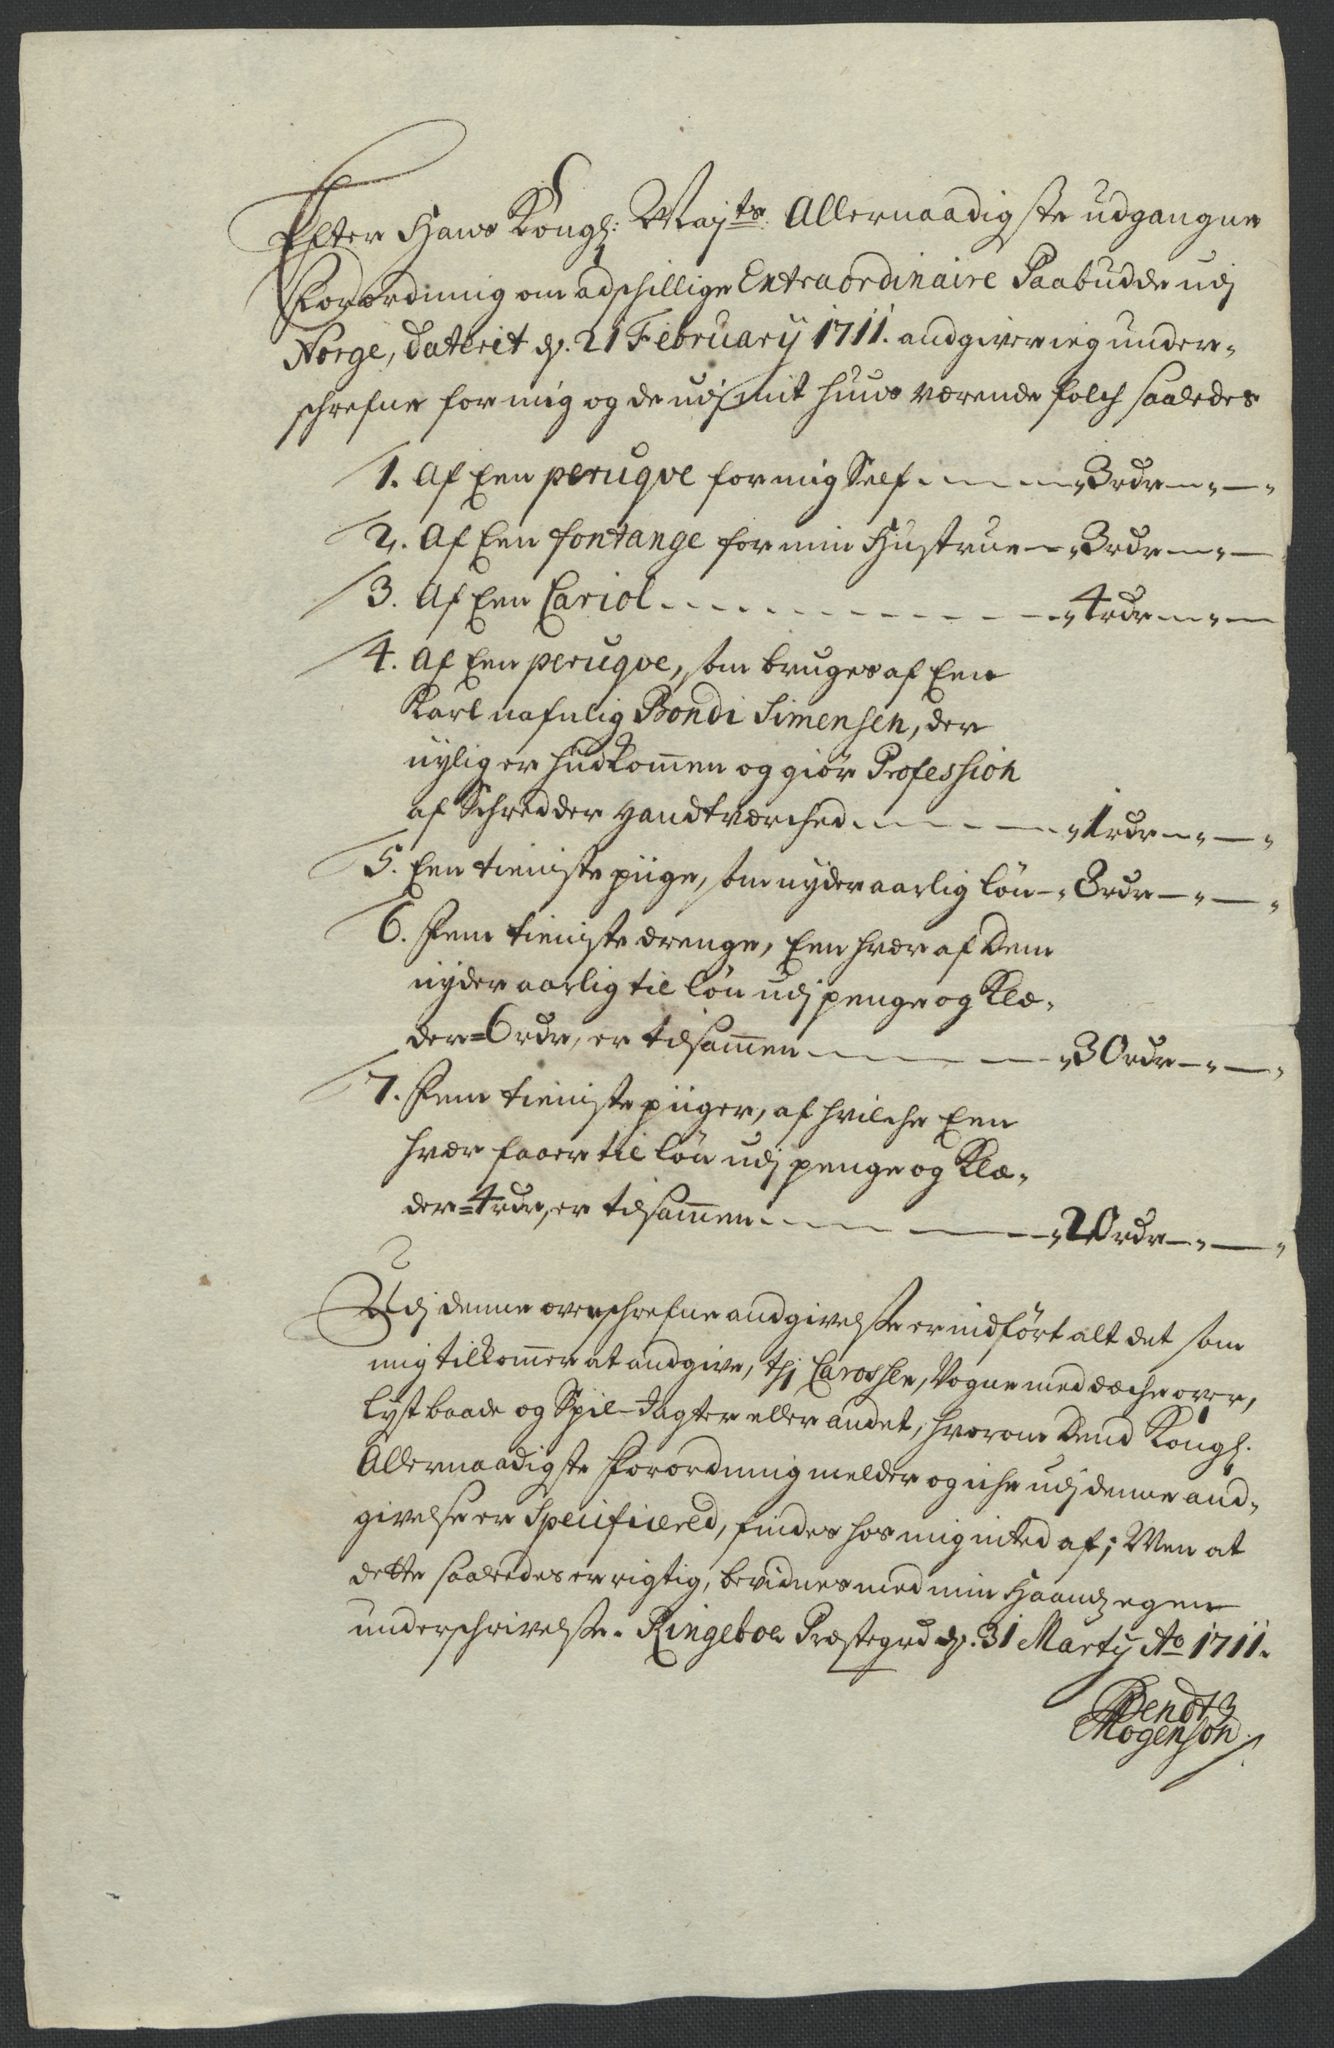 Efter Hans Kongl: Maj:ts Allernaadigste udgangne
Forordning om adschillige Extraordinaire Paabudde udj
Norge, daterit d. 21 February 1711. andgiver ieg under-
schrefne for mig og de udj mit huus værende folch saaledes
1. Af Een peruqve for mig Self . — — — „3 rdr — „ — „
2. Af Een fontange for min Hustrue — „3 rdr — „ —
3. Af Een Cariol . — — — — — „4 rdr — „ —
4. Af Een peruqve, som bruges af Een
Karl nafnlig Bondi Simensen, der
nylig er hidkommen og giör Profession
af Schredder Handtværched . — — — „1 rdr — „ — „
5. Een tieniste piige, som nyder aarlig lön — „8 rdr — „ — „
6. Fem tieniste drenge, Een hver af dem
nyder aarlig til lön udj penge og Klæ-
der = 6 rdr, er tilsammen — — — — „30 rdr — „ — „
7. Fem tieniste piiger, af hvilche Een
hver faaer til lön udj penge og Klæ-
der = 4 rdr, er tilsammen . — — — „20 rdr — „ — „
Udj denne overschrefne andgivelsse er indfört alt det som
mig tilkommer at andgive, thj Carosser, Vogne med dæche over,
Lystbaade og Spil-Jagter eller andet, hvorom Dend Kongl.
Allernaadigste Forordning melder og iche udj denne and-
givelse er Specificered, findes hos mig inted af; Men at
dette saaledes er rigtig, bevidnes med min Haandz egen
underschrivelsse. Ringeboe Præstegrd d. 31 Marty Ao 1711.
Bendt
Mogenson